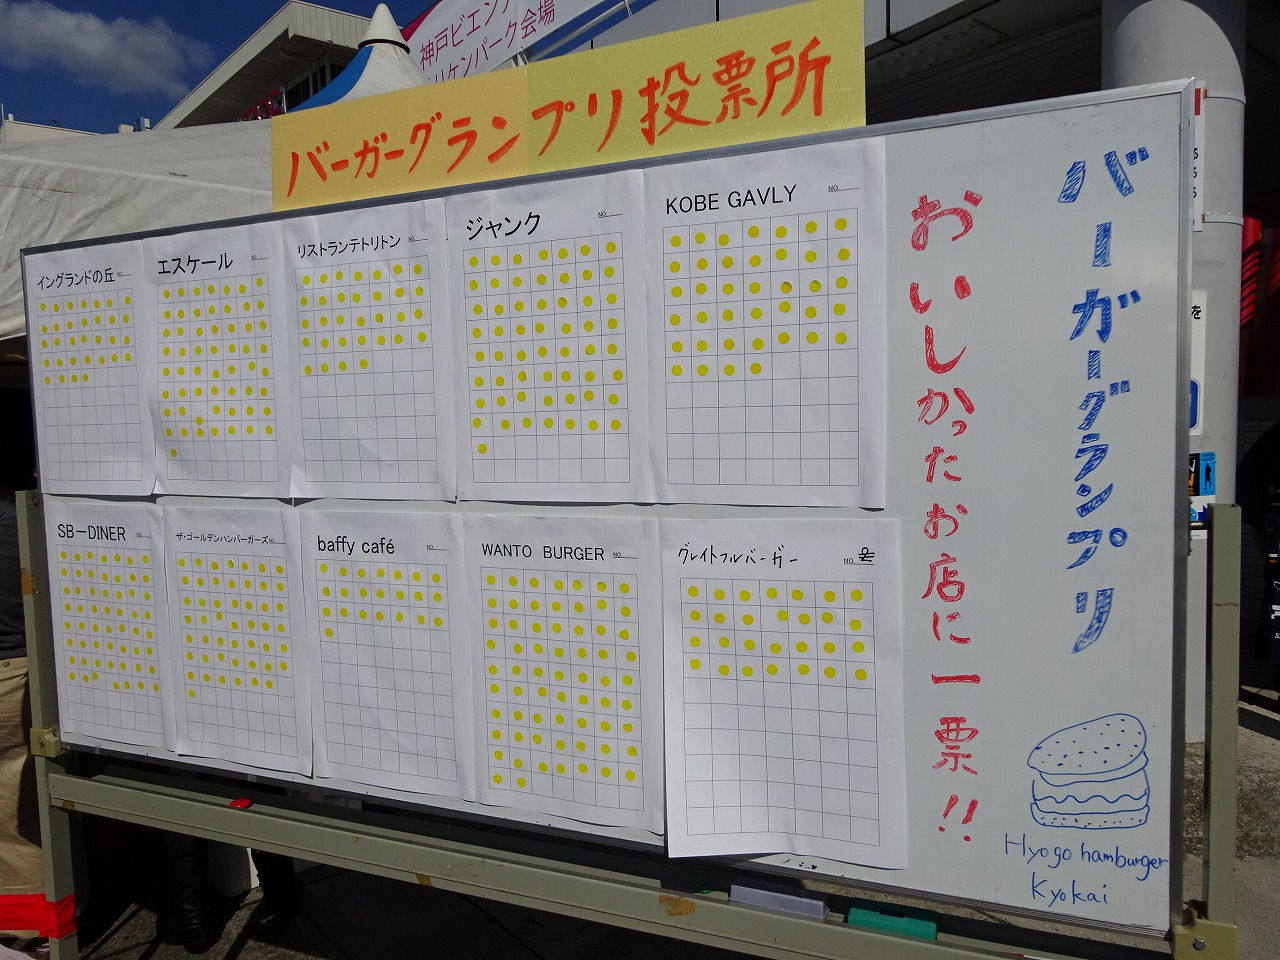 神戸ビエン
リケンパーク会場
バーガーグランプリ投票所
イングランドの丘 NO.
エスケール NO.
リストランテトリトン NO.
ジャンク NO.
KOBE GAVLY NO.
SBーDINER NO.
ザ・ゴールデンハンバーガーズ NO.
baffy café NO.
WANTO BURGER NO.
グレイトフルバーガー NO.
バーガーグランプリ
おいしかったお店に一票!!
Hyogo hamburger
Kyokai
を